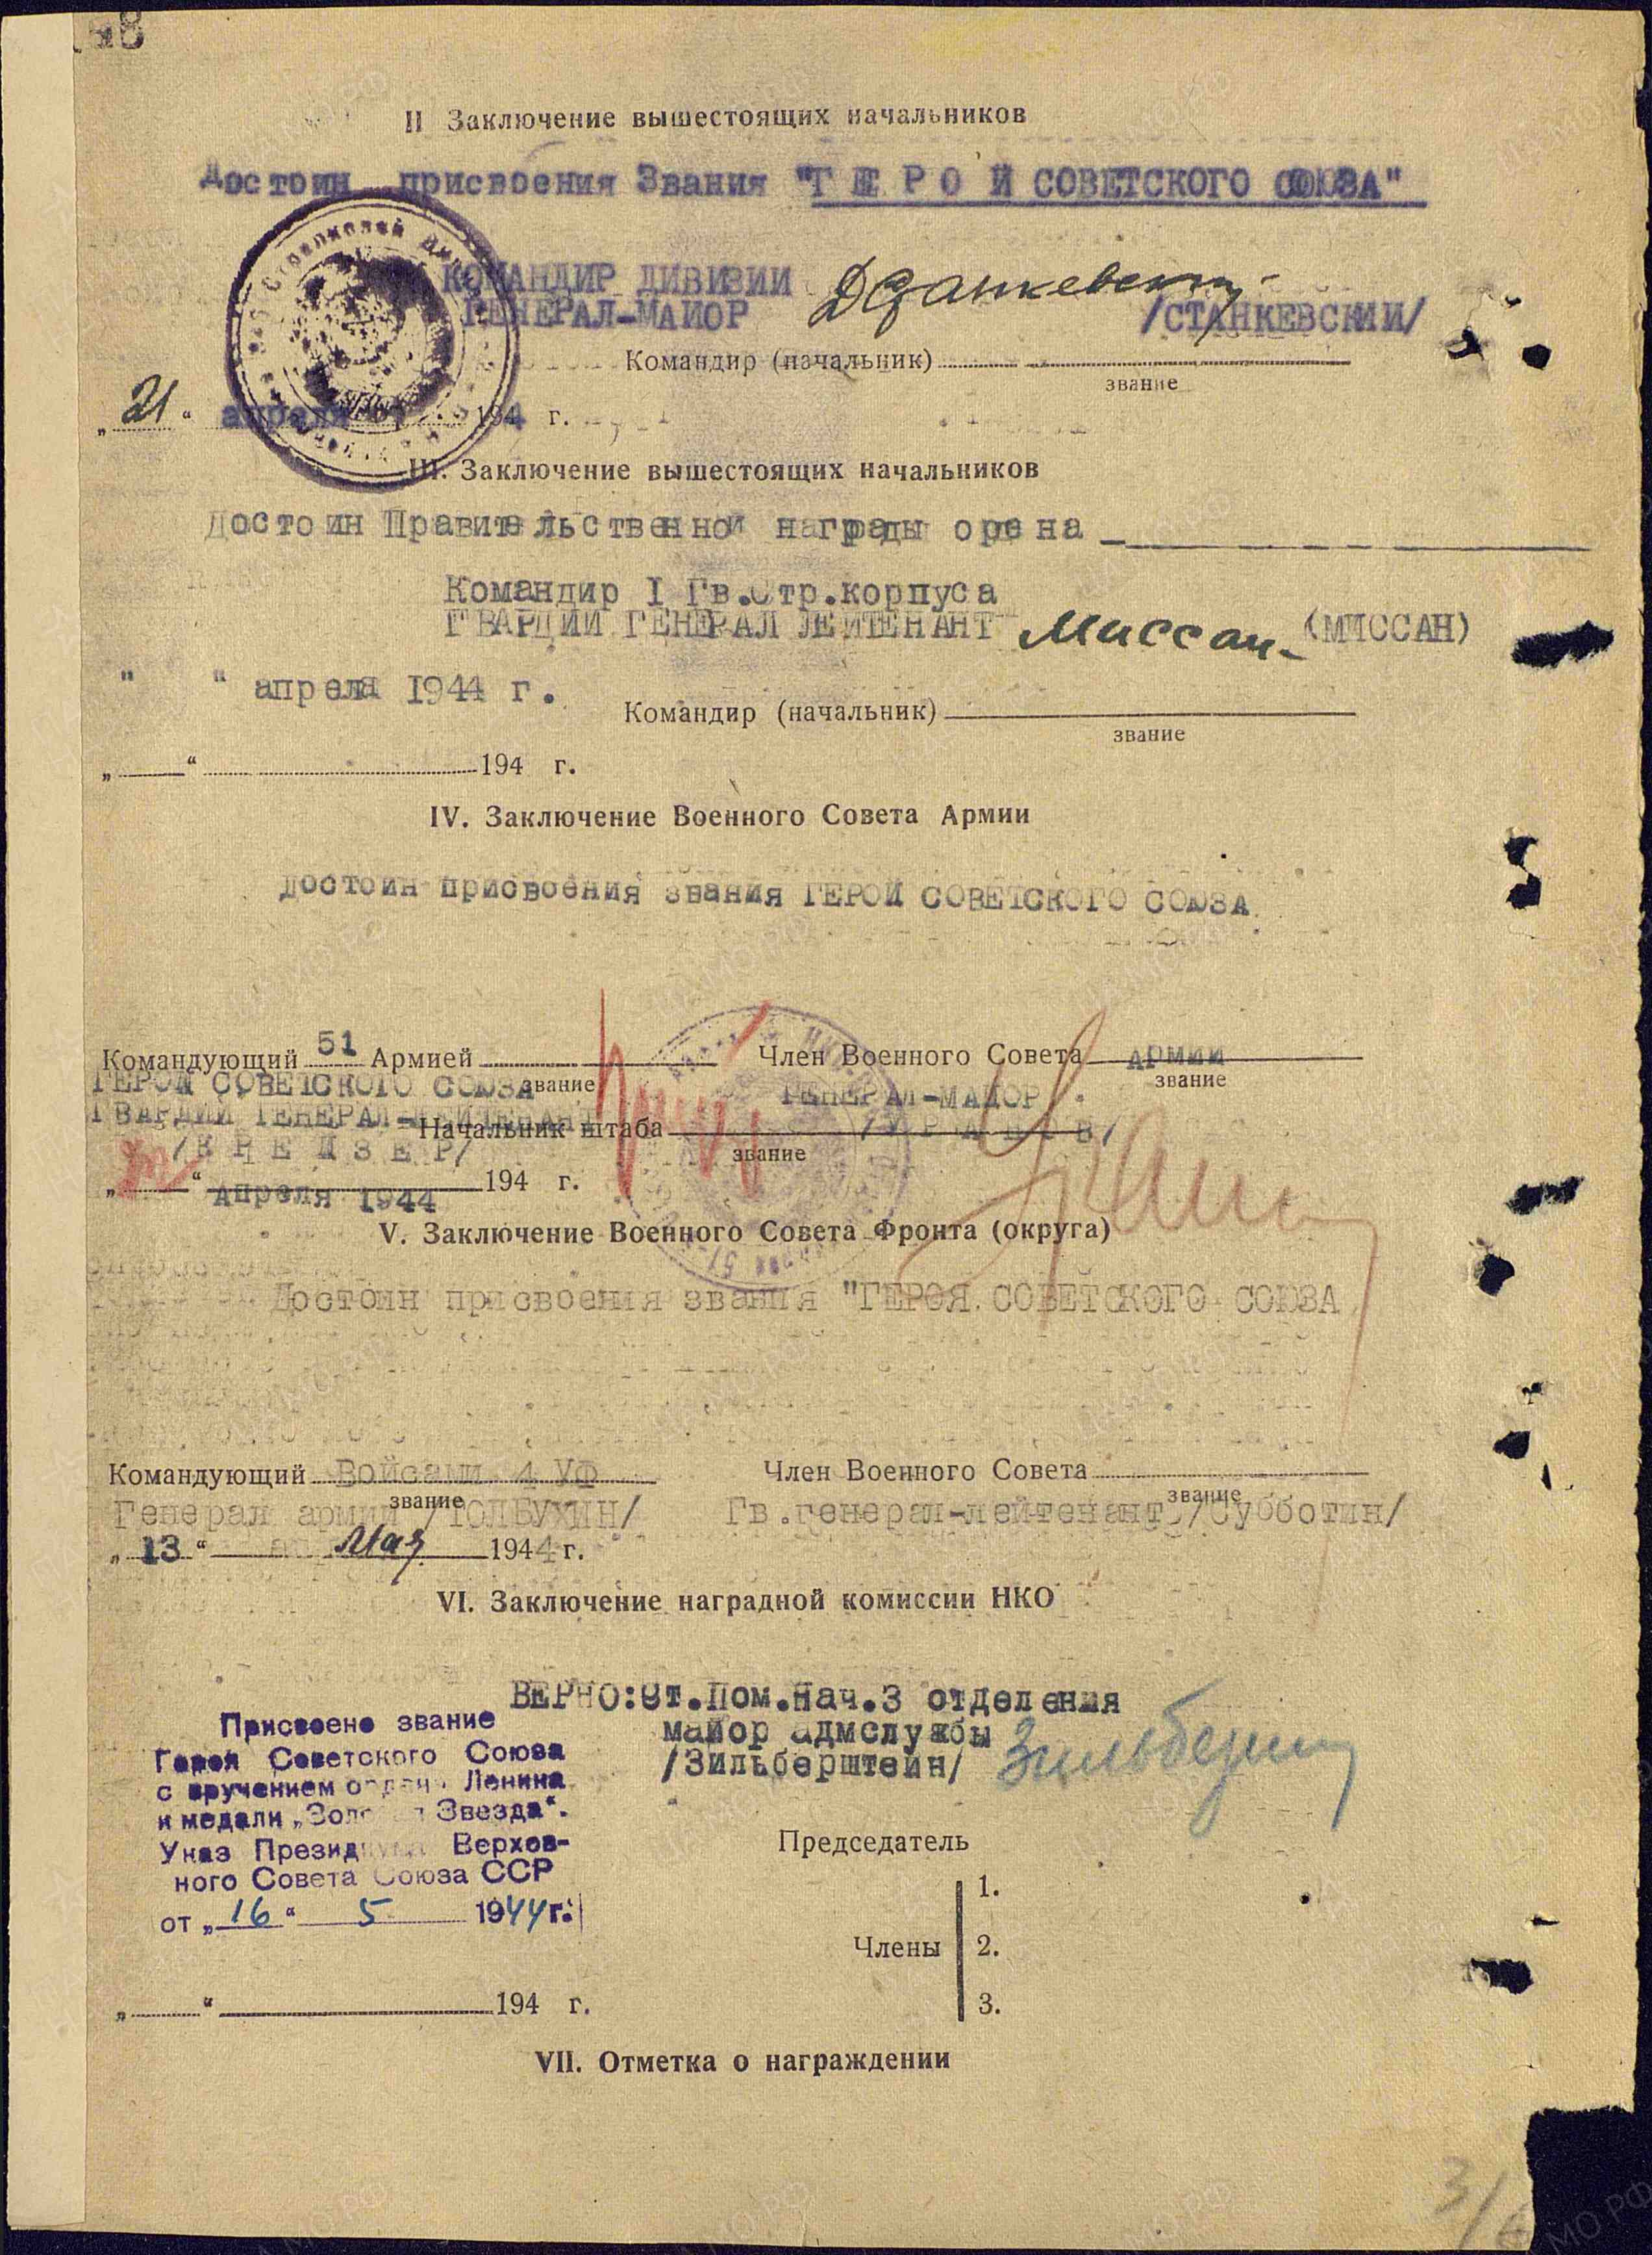 II Заключение вышестоящих начальников
Достоин присвоения Звания "ГЕРОЙ СОВЕТСКОГО СОЮЗА"
КОМАНДИР ДИВИЗИИ
ГЕНЕРАЛ-МАЙОР /СТАНКЕВСКИЙ/
Командир (начальник)
звание
„21“ апреля 1944 г.
III. Заключение вышестоящих начальников
Достоин Правительственной награды орена
Командир I Гв.Стр.корпуса
ГВАРДИИ ГЕНЕРАЛ ЛЕЙТЕНАНТ Миссан (МИССАН)
" " апреля 1944 г.
Командир (начальник)
звание
„ “ 194 г.
IV. Заключение Военного Совета Армии
Достоин присвоения звания ГЕРОЙ СОВЕТСКОГО СОЮЗА
Командующий 51 Армией Член Военного Совета Армии
звание звание
ГЕРОЙ СОВЕТСКОГО СОЮЗА ГЕНЕРАЛ-МАЙОР
ГВАРДИИ ГЕНЕРАЛ-ЛЕЙТЕНАНТ
Начальник штаба /УРАНОВ/
звание
/КРЕЙЗЕР/
„ “ Апреля 1944 194 г.
V. Заключение Военного Совета Фронта (округа)
Достоин присвоения звания "ГЕРОЯ СОВЕТСКОГО СОЮЗА
Командующий Войсами 4 УФ Член Военного Совета
звание звание
Генерал армии /ТОЛБУХИН/ Гв.генерал-лейтенант /Субботин/
„13“ Мая 1944 г.
VI. Заключение наградной комиссии НКО
ВЕРНО:Ст.Пом.Нач.3 отделения
майор адмслужбы
/Зильберштейн/
Присвоено звание
Героя Советского Союза
с вручением ордена Ленина
и медали „Золотая Звезда“.
Указ Президиума Верхов-
ного Совета Союза ССР
от „16“ 5 1944 г.
Председатель
1.
Члены 2.
3.
„ “ 194 г.
VII. Отметка о награждении